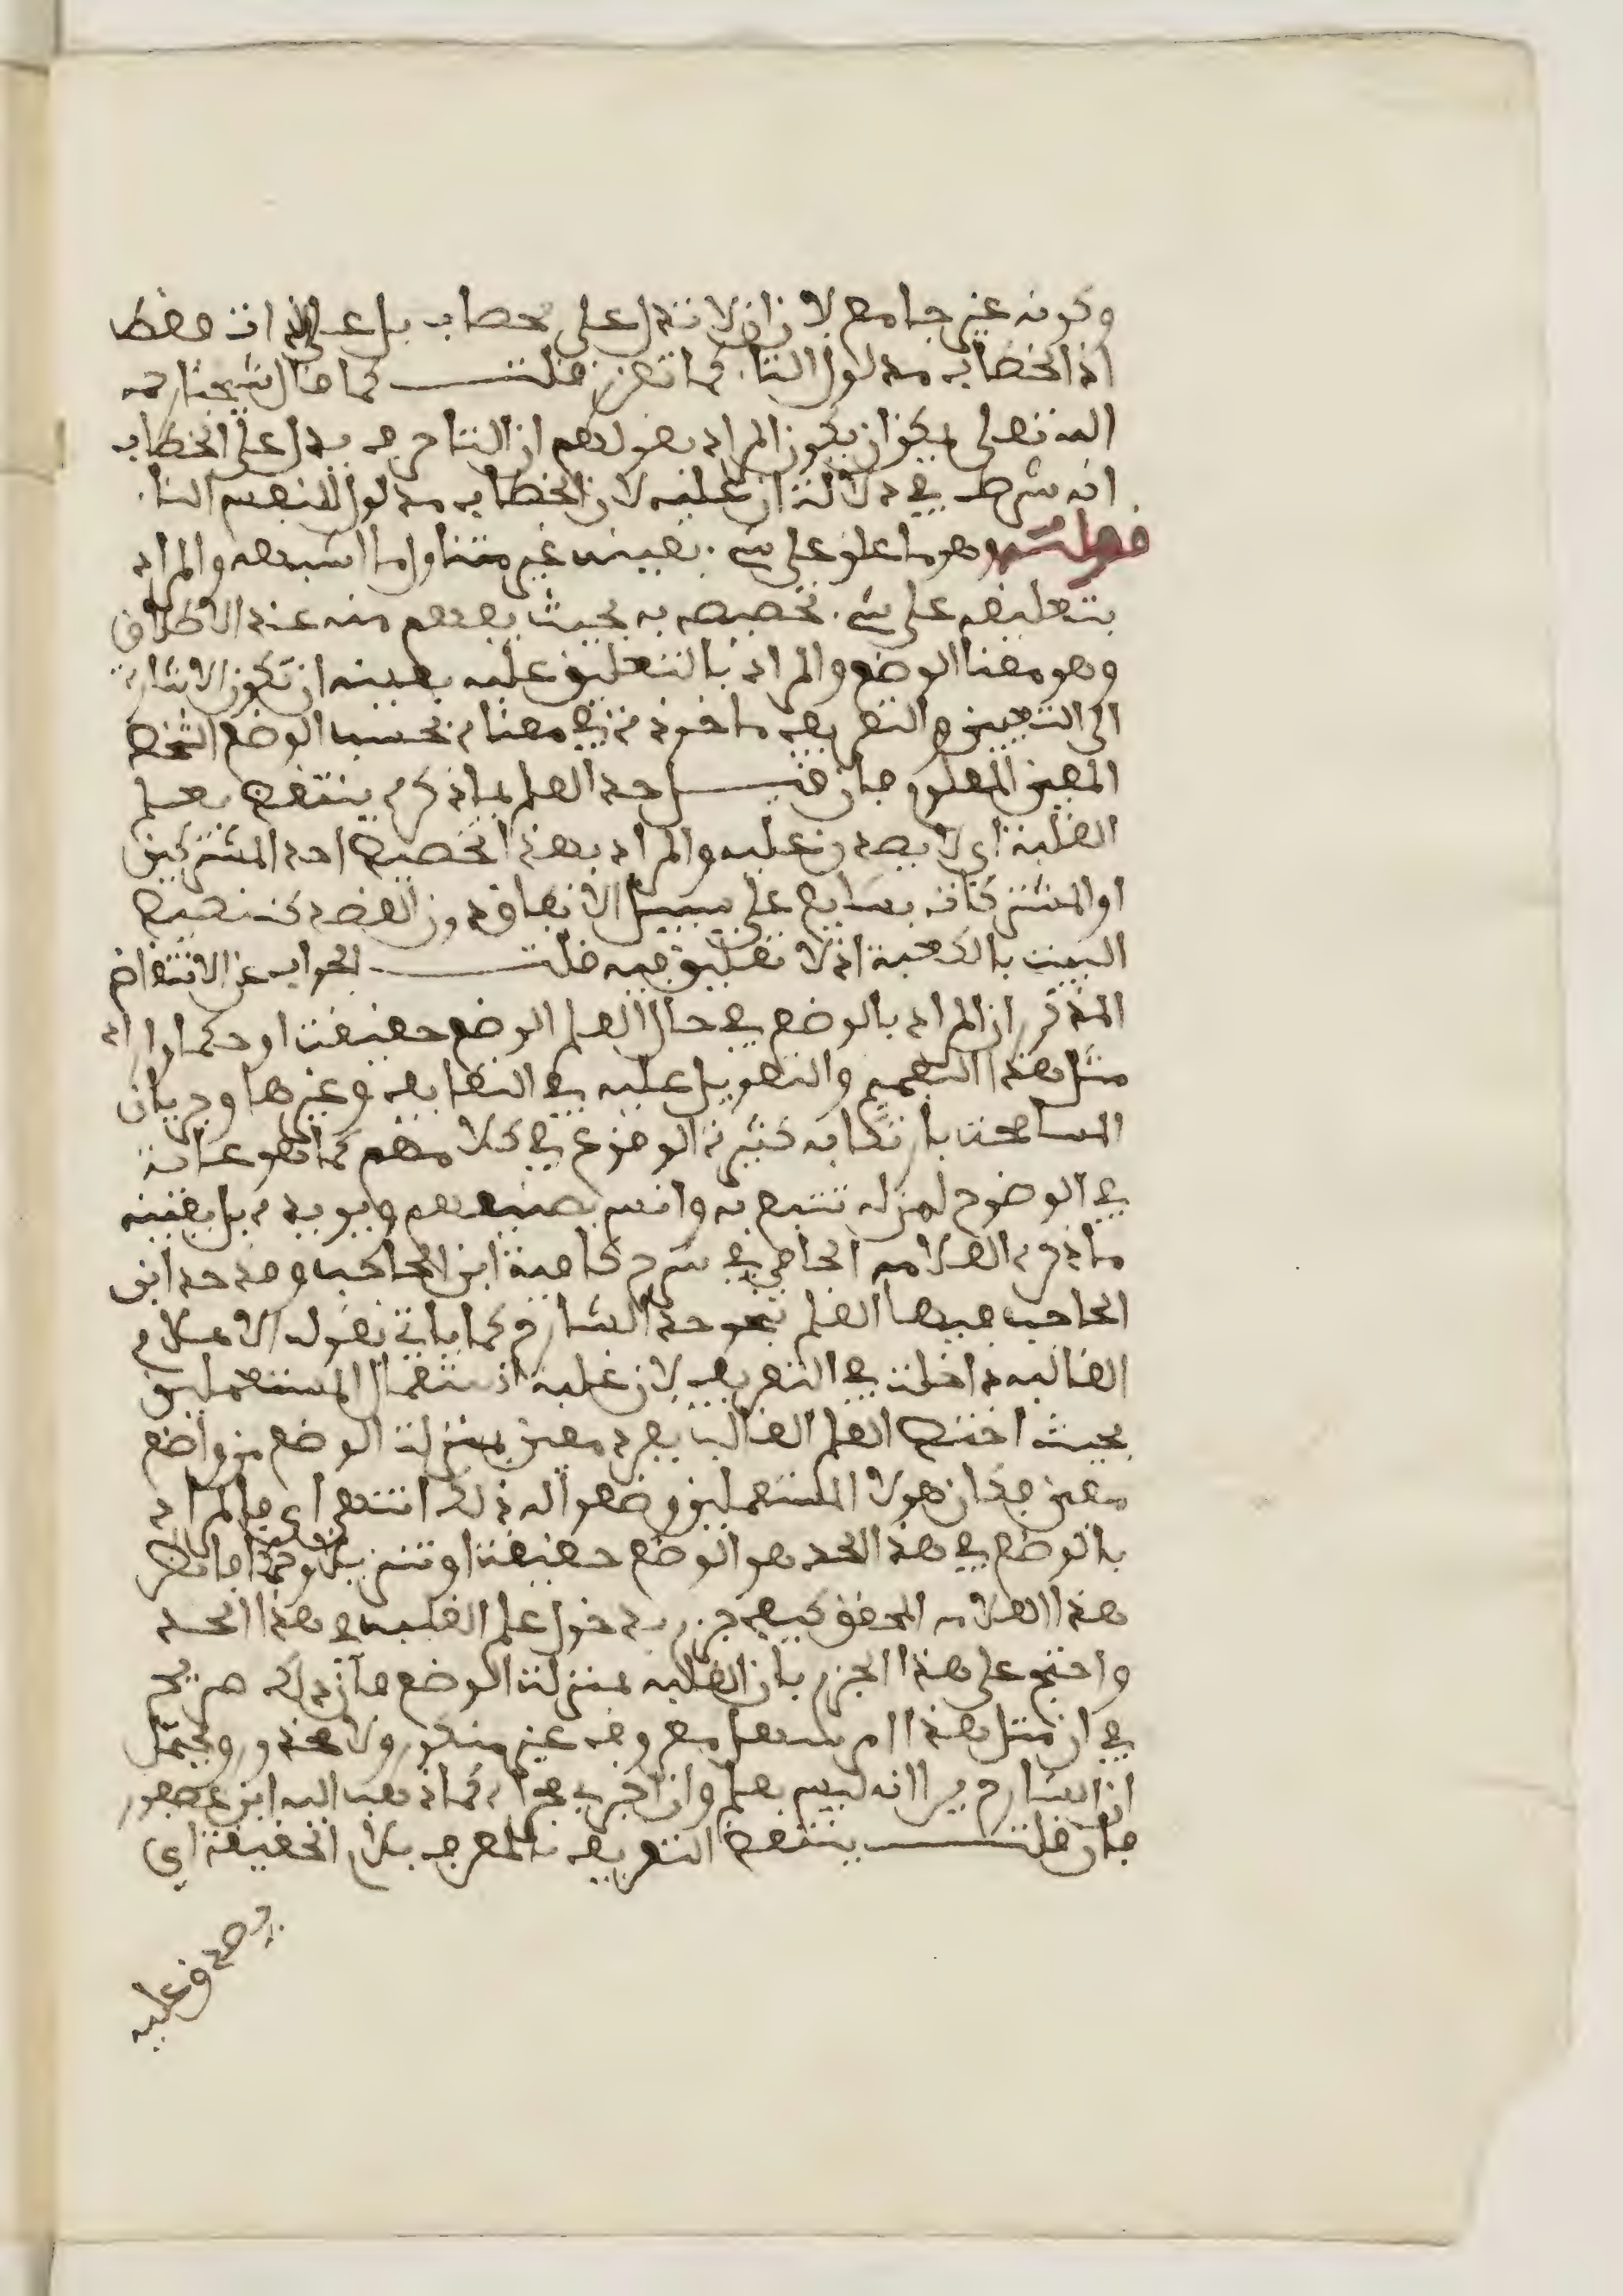 وكونه غير جامع لان ان لا تدل على خطاب بل على الذات فقط
اذ الخطاب مدلول التاء كما تقرر قلت كما قال شيخنا رحمه
الله تعلى يمكن ان يكون المراد بقولهم ان التا حرف يدل على الخطاب
انه شرط في دلالة ان عليه لان الخطاب مدلول لنفس التاء
قوله وهو ما علق على شيء بعينه غير متناول ما اشبهه والمراد
بتعليقه على شيء تخصيصه به بحيث يفهم منه عند الاطلاق
وهو معنا الوضع والمراد بالتعليق عليه بعينه ان تكون الاشارة
الى التعيين والتعريف ماخوذة في معناه بحسب الوضع الشخص
المعين المعلوم فان قيل حد العلم بما ذكره ينتقض بعلم
الغلبة اي لا يصدق عليه والمراد بهذا تخصيص احد المشتركين
او المشتركات بشايع على سبيل الاتفاق دون القصد كتخصيص
البيت بالكعبة اذ لا تعليق فيه قلت الجواب عن الانتقاض
المذكور ان المراد بالوضع في حال العلم الوضع حقيقة او حكما وارادة
مثل هذا التعميم والتعويل عليه في التعاريف وغيرها وجريان
المسامحة بارتكابه كثير الوقوع في كلامهم كما هو غاية
في الوضوح لمن له تتبع به وانس بصنيعهم ويويده بل يعينه
ما ذكره العلامه الجامي في شرح كافية ابن الحاجب وقد حد ابن
الحاجب فيها العلم بنحو حد الشارح كما ياتي بقوله الاعلام
الغالبة داخلة في التعريف لان غلبة استعمال المستعملين
بحيث اختص العلم الغالب بفرد معين بمنزلة الوضع من واضع
معين فكان هولا المستعملين وضعوا له ذلك انتهى اي فالمراد
بالوضع في هذا الحد هو الوضع حقيقة او تنزيلا وحكما فانظر
هذا العلامه المحقق كيف جزم بدخول علم الغلبة في هذا الحد
واحتج على هذا الجزم بان الغلبة بمنزلة الوضع فان ذلك صريح
في ان مثل هذا الامر معروف غير منكور ولا محذور ويحتمل
ان الشارح يرا انه ليس بعلم وان اجري مجراه كما ذهب اليه ابن عصفور
فان قلت ينتقض التعريف بالمعرف بلام الحقيقة اي
يصدق عليه